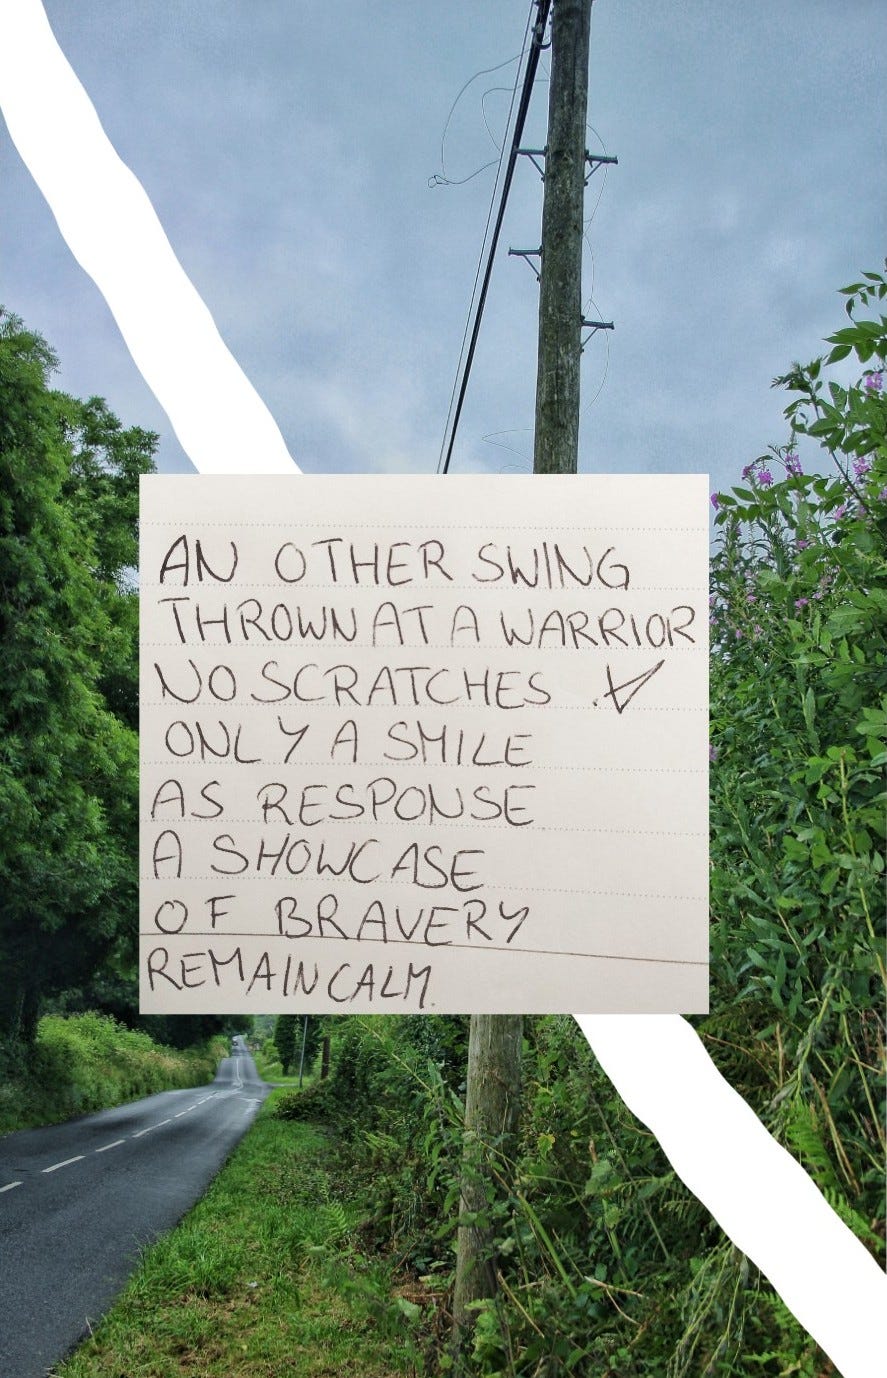 AN OTHER SWING
THROWN AT A WARRIOR
NO SCRATCHES
ONLY A SMILE
AS RESPONSE
A SHOWCASE
OF BRAVERY
REMAIN CALM.